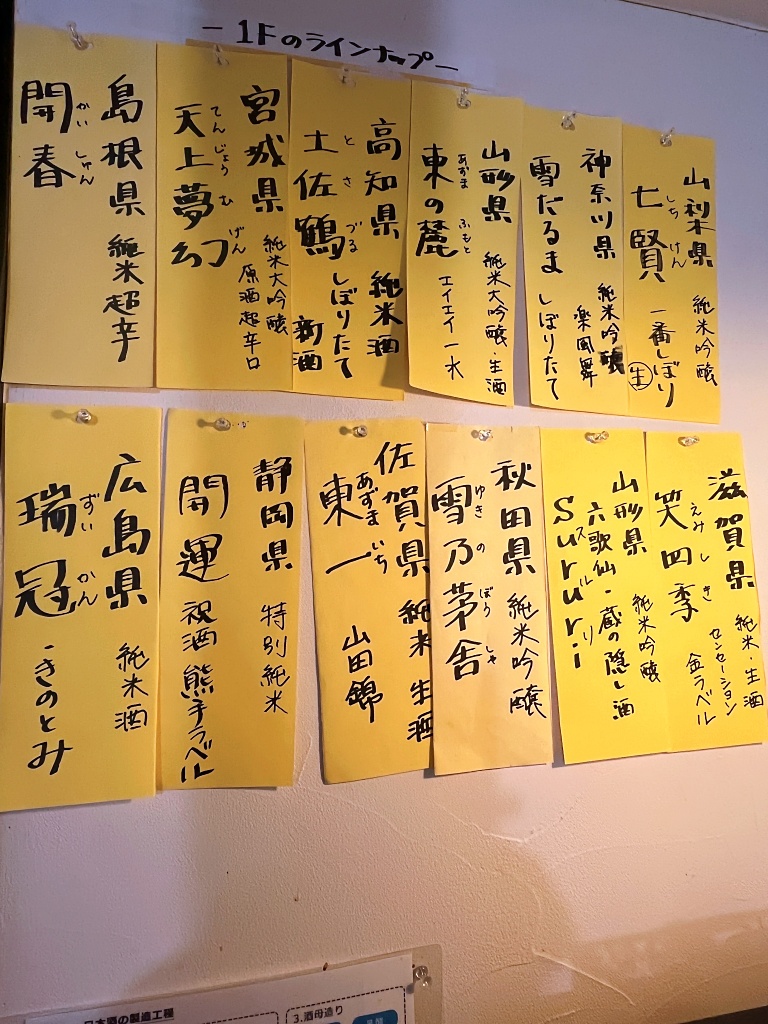 -1Fのラインナップ-
山梨県 純米吟醸
七賢 一番しぼり 生
しち けん
神奈川県 純米吟醸
楽風舞
雪だるま しぼりたて
山形県 純米大吟醸・生酒
東の麓 エイエイ一水
あずま ふもと
高知県 純米酒
土佐鶴 しぼりたて
と さ づる
新酒
宮城県 純米大吟醸
原酒超辛口
天上夢幻
てん じょう む げん
島根県 純米超辛
開春
かい しゅん
滋賀県 純米・生酒
笑四季 センセーション
えみ し き
金ラベル
山形県 純米吟醸
六歌仙・蔵の隠し酒
Sururi
スルリ
秋田県 純米吟醸
雪乃茅舎
ゆき の ぼう しゃ
佐賀県 純米 生酒
東一 山田錦
あずま いち
静岡県 特別純米
開運 祝酒 熊手ラベル
広島県 純米酒
瑞冠 きのとみ
ずい かん
日本酒の製造工程
3.酒母造り